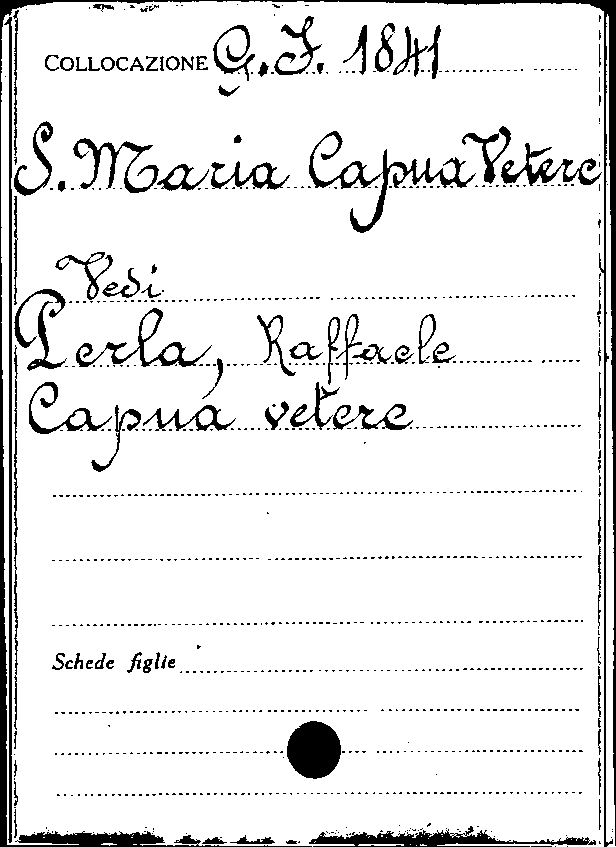 COLLOCAZIONE G.I. 1841
S. Maria Capua Vetere
Vedi
Perla, Raffaele
Capua vetere
Schede figlie